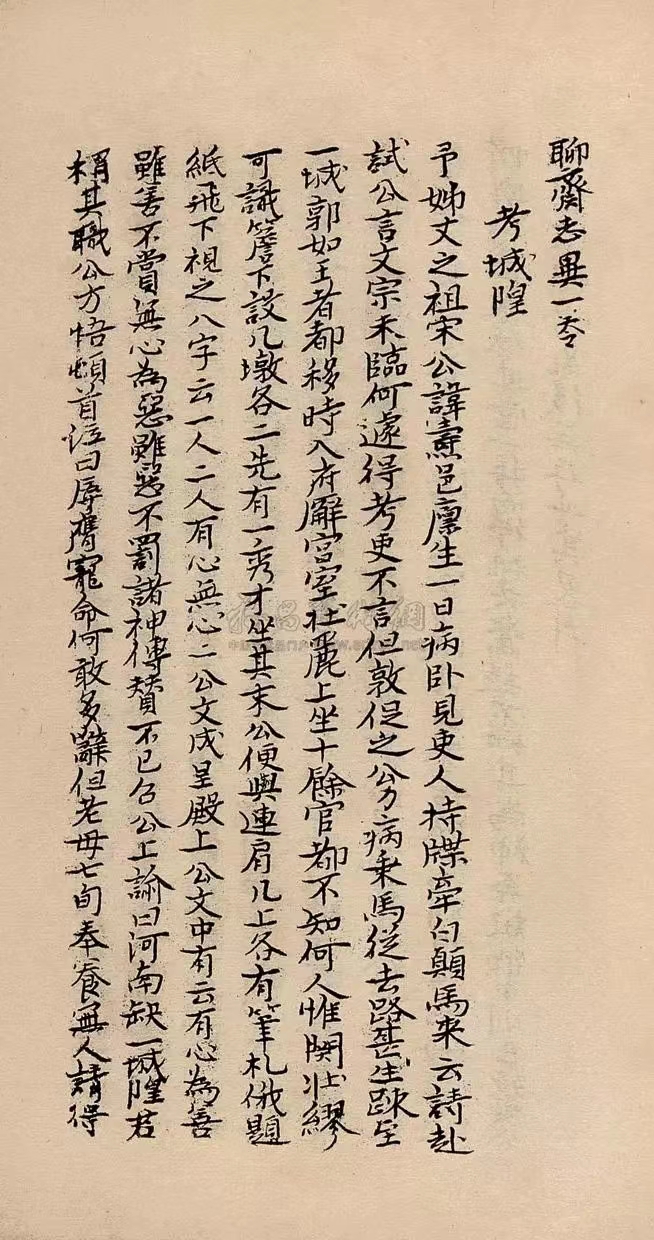 聊齋志異一卷
考城隍
予姊丈之祖宋公諱燾邑廩生一日病臥見吏人持牒牽白顛馬来云請赴
試公言文宗未臨何遽得考吏不言但敦促之公力病乘馬從去路甚生踈至
一城郭如王者都移時入府廨宮室壮麗上坐十餘官都不知何人惟関壮繆
可識簷下設几墩各二先有一秀才坐其末公便與連肩几上各有筆札俄題
紙飛下視之八字云一人二人有心無心二公文成呈殿上公文中有云有心為善
雖善不賞無心為惡雖惡不罰諸神傳贊不已召公上諭曰河南缺一城隍君
稱其職公方悟頓首泣曰辱膺寵命何敢多辭但老母七旬奉養無人請得